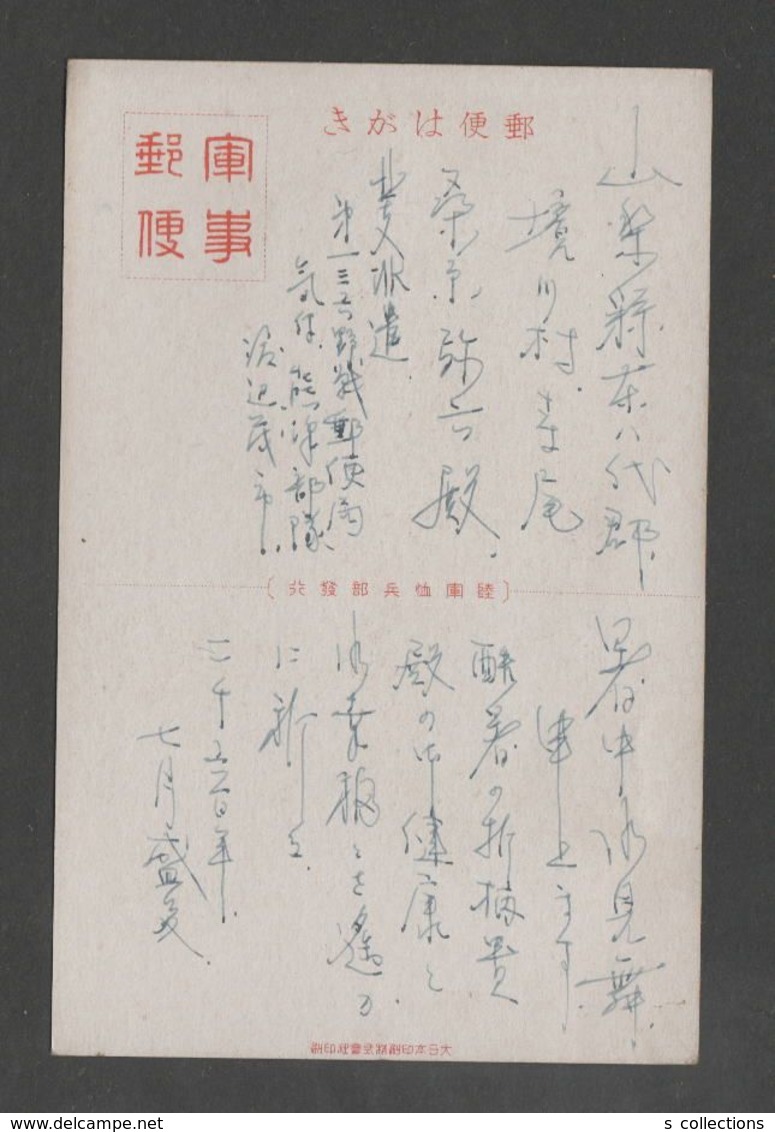 郵便はがき
軍事
郵便
山梨縣東八代郡
境川村寺尾
桑原弥六殿
北支派遣
第一三六野戦郵便局
気付 熊澤部隊
渡辺茂市
〔陸軍恤兵部發行〕
暑中御見舞
申上ます
酷暑の折柄貴
殿の御健康と
御幸福とを遙か
に祈る
二千六百年
七月盛夏
大日本印刷株式會社印刷
s collections
www.delcampe.net